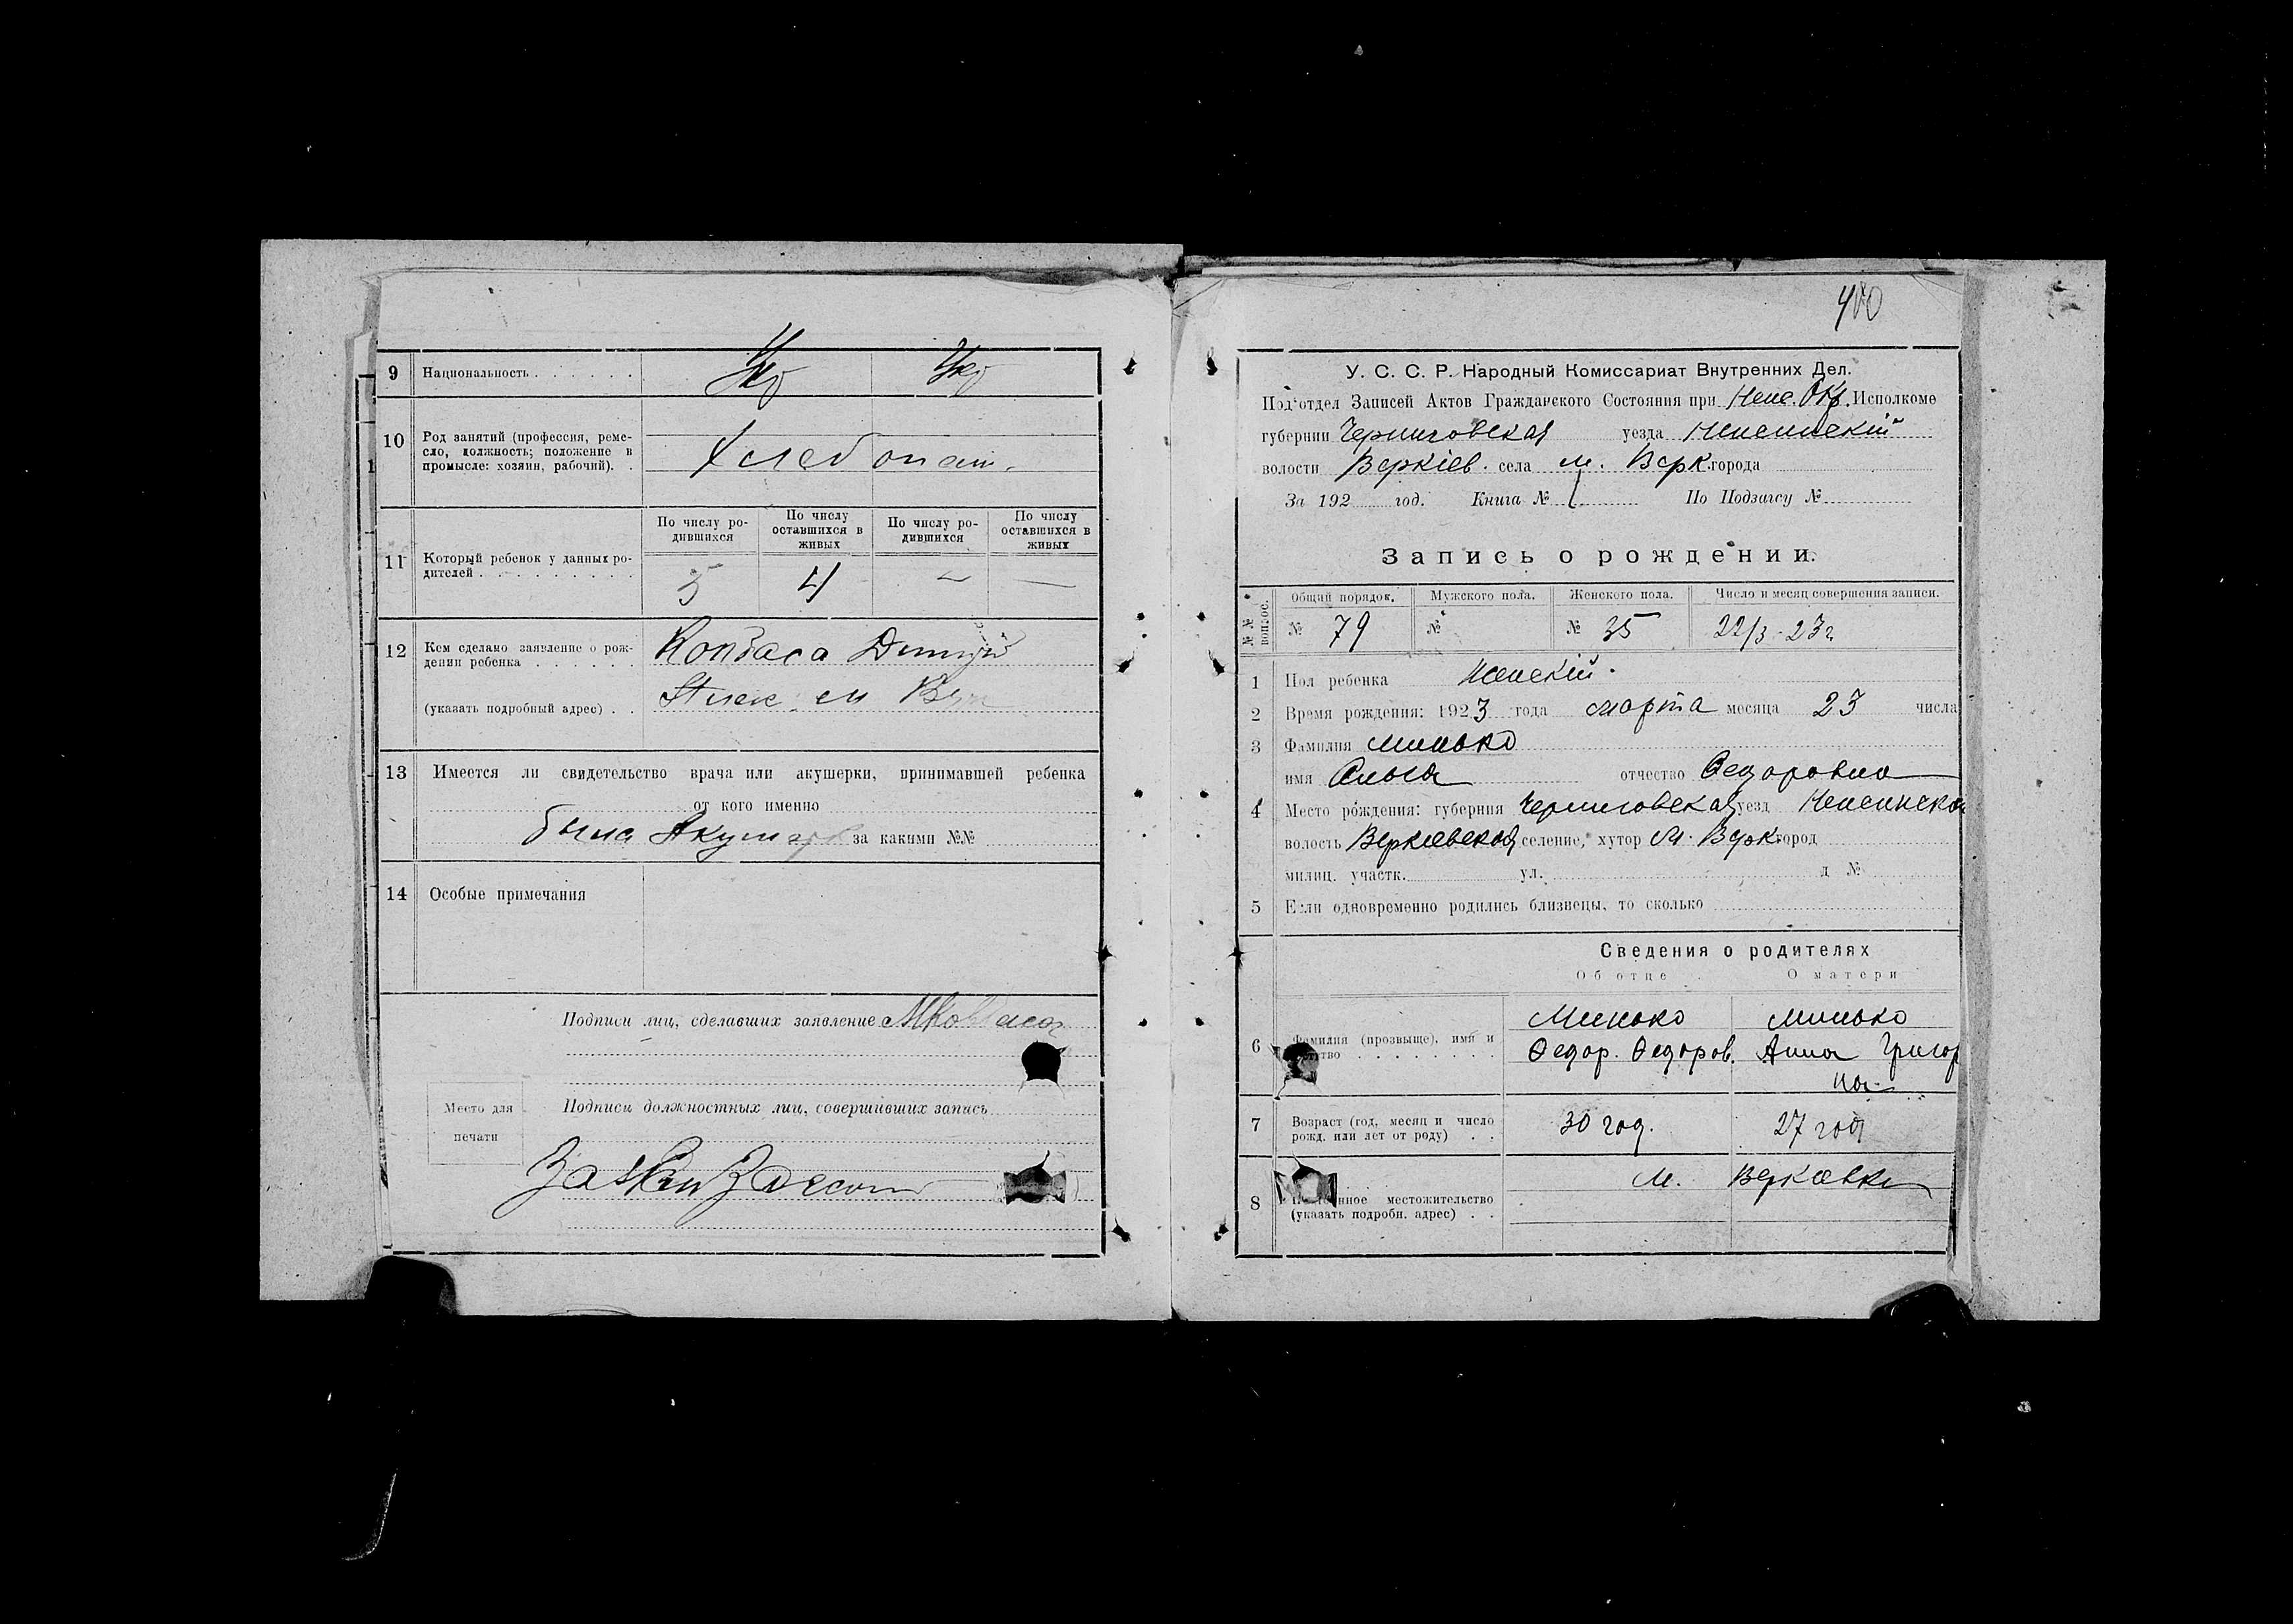 9 Национальность . . . . . . Укр Укр
10 Род занятий (профессия, реме-
сло, должность; положение в
промысле: хозяин, рабочий). . Хлебопаш.
11 Который ребенок у данных ро-
дителей . . . . . . . . . .
По числу ро-
дившихся
По числу
оставшихся в
живых
По числу ро-
дившихся
По числу
оставшихся в
живых
5 4 — —
12 Кем сделано заявление о рож-
дении ребенка . . . . . . Ковбаса
(указать подробный адрес) . .
13 Имеется ли свидетельство врача или акушерки, принимавшей ребенка
от кого именно
была за какими №№
14 Особые примечания
Подписи лиц, сделавших заявление
Место для
печати
Подписи должностных лиц, совершивших запись
400
У. С. С. Р. Народный Комиссариат Внутренних Дел.
Под'отдел Записей Актов Гражданского Состояния при Неж. Окр. Исполкоме
губернии Черниговская уезда Неженский
волости Веркіев. села м. Верк. города
За 192 год. Книга № По Подзагсу №
Запись о рождении.
№№ вопрос.
Общий порядок. Мужского пола. Женского пола. Число и месяц совершения записи.
№ 79 № № 35 22/3 - 23 г
1 Пол ребенка Женскій
2 Время рождения: 1923 года марта месяца 23 числа
3 Фамилия Минько
имя Ольга отчество Федоровна
4 Место рождения: губерния Черниговская уезд
волость Веркіевская селение, хутор м. Верк город
милиц. участк. ул. д №
5 Если одновременно родились близнецы, то сколько
Сведения о родителях
Об отце О матери
6 Фамилия (прозвыще), имя и
отчество . . . . . . . .
Минько Минько
Ѳедор. Ѳедоров. Анна Григор
на
7 Возраст (год, месяц и число
рожд. или лет от роду) . .
30 год. 27 год
8 местожительство
(указать подробн. адрес) . .
м. Веркіевка